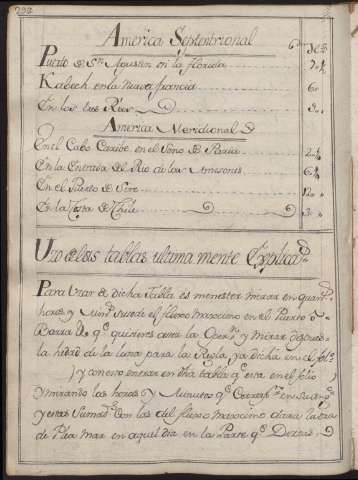 America Septentrional
Puerto de Sn. Agustin en la florida 7½
Kabech en la nueva francia 6
En las tres Rios
America Meridional
En el Cabo Caribe en el Seno de Paria 2½
En la Entrada del Rio de las Amazonas 6½
En el Puerto de 12
En la Costa de Chile 3
Uzo de las tablas ultima mente Explica
Para Uzar de dicha Tabla es menester mirar en quant
horas y sucede el flixo maximo en el Puerto ò
Barra de qe. quisieres aver la Opern. y mirar despues
la hedad de la luna para la Regla ya dicha en el fol.
) y con esto entrar en dha tabla qe. esta en el folio
y mirando las horas y Minutos qe.
y estas con las del flixo maximo dara la hora
de Plea mar en aquel dia en la Parte qe.